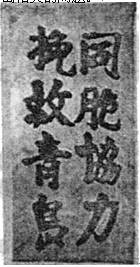 同胞協力
挽救青島